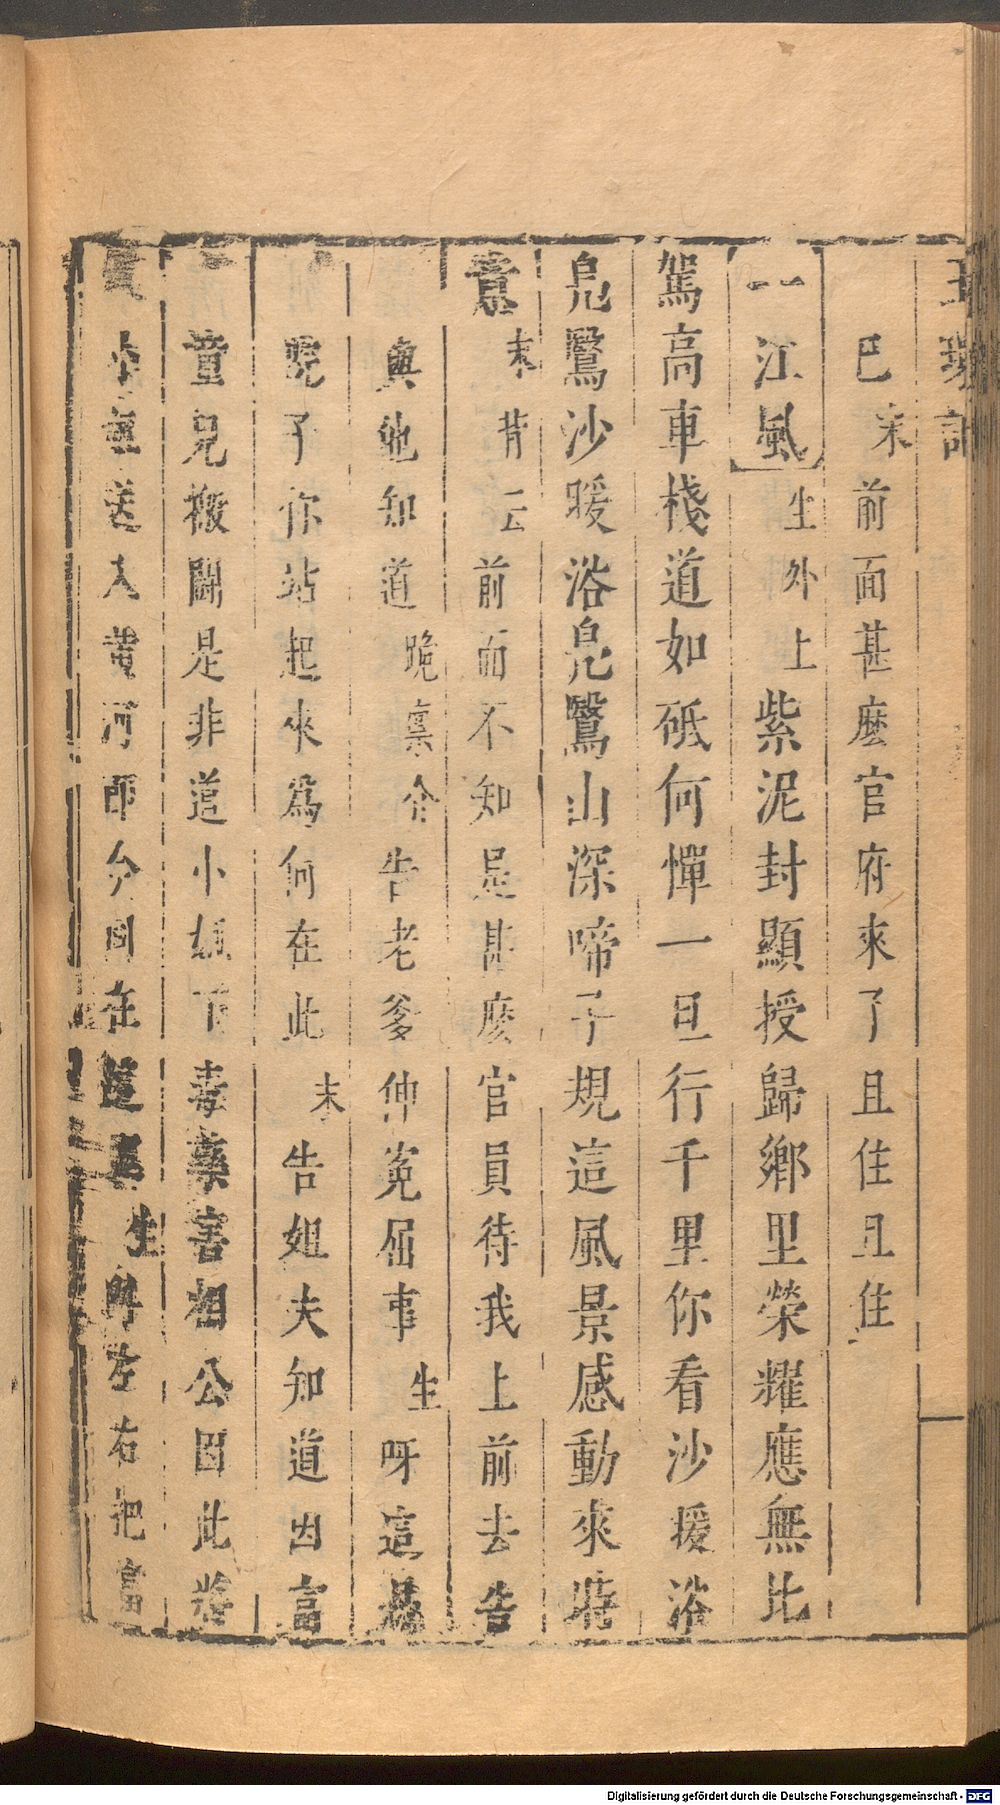 玉環記
巴末前面甚麼官府來了且住且住
一江風生外上紫泥封顯授歸鄉里榮耀應無比
駕高車棧道如砥何憚一旦行千里你看沙援浴
鳧鷖沙暖浴鳧鷖山深啼子規這風景感動來時
意末背云前面不知是甚麼官員待我上前去告
與他知道跪稟介告老爹伸冤屈事生呀這
子你站起來爲何在此末告姐夫知道因富
童兒搬鬪是非道小姐下毒藥害相公因此將
小送入黃河即今在生左右把富
Digitalisierung gefördert durch die Deutsche Forschungsgemeinschaft - DFG